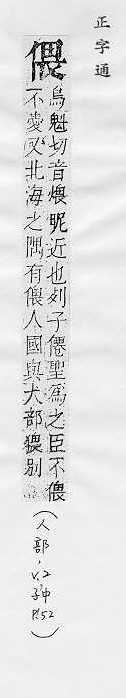 正字通
偎
烏魁切音煨昵近也列子僊聖爲之臣不偎
不愛又北海之隅有偎人國與犬部猥别
(人部,V.2
子中
P.52)